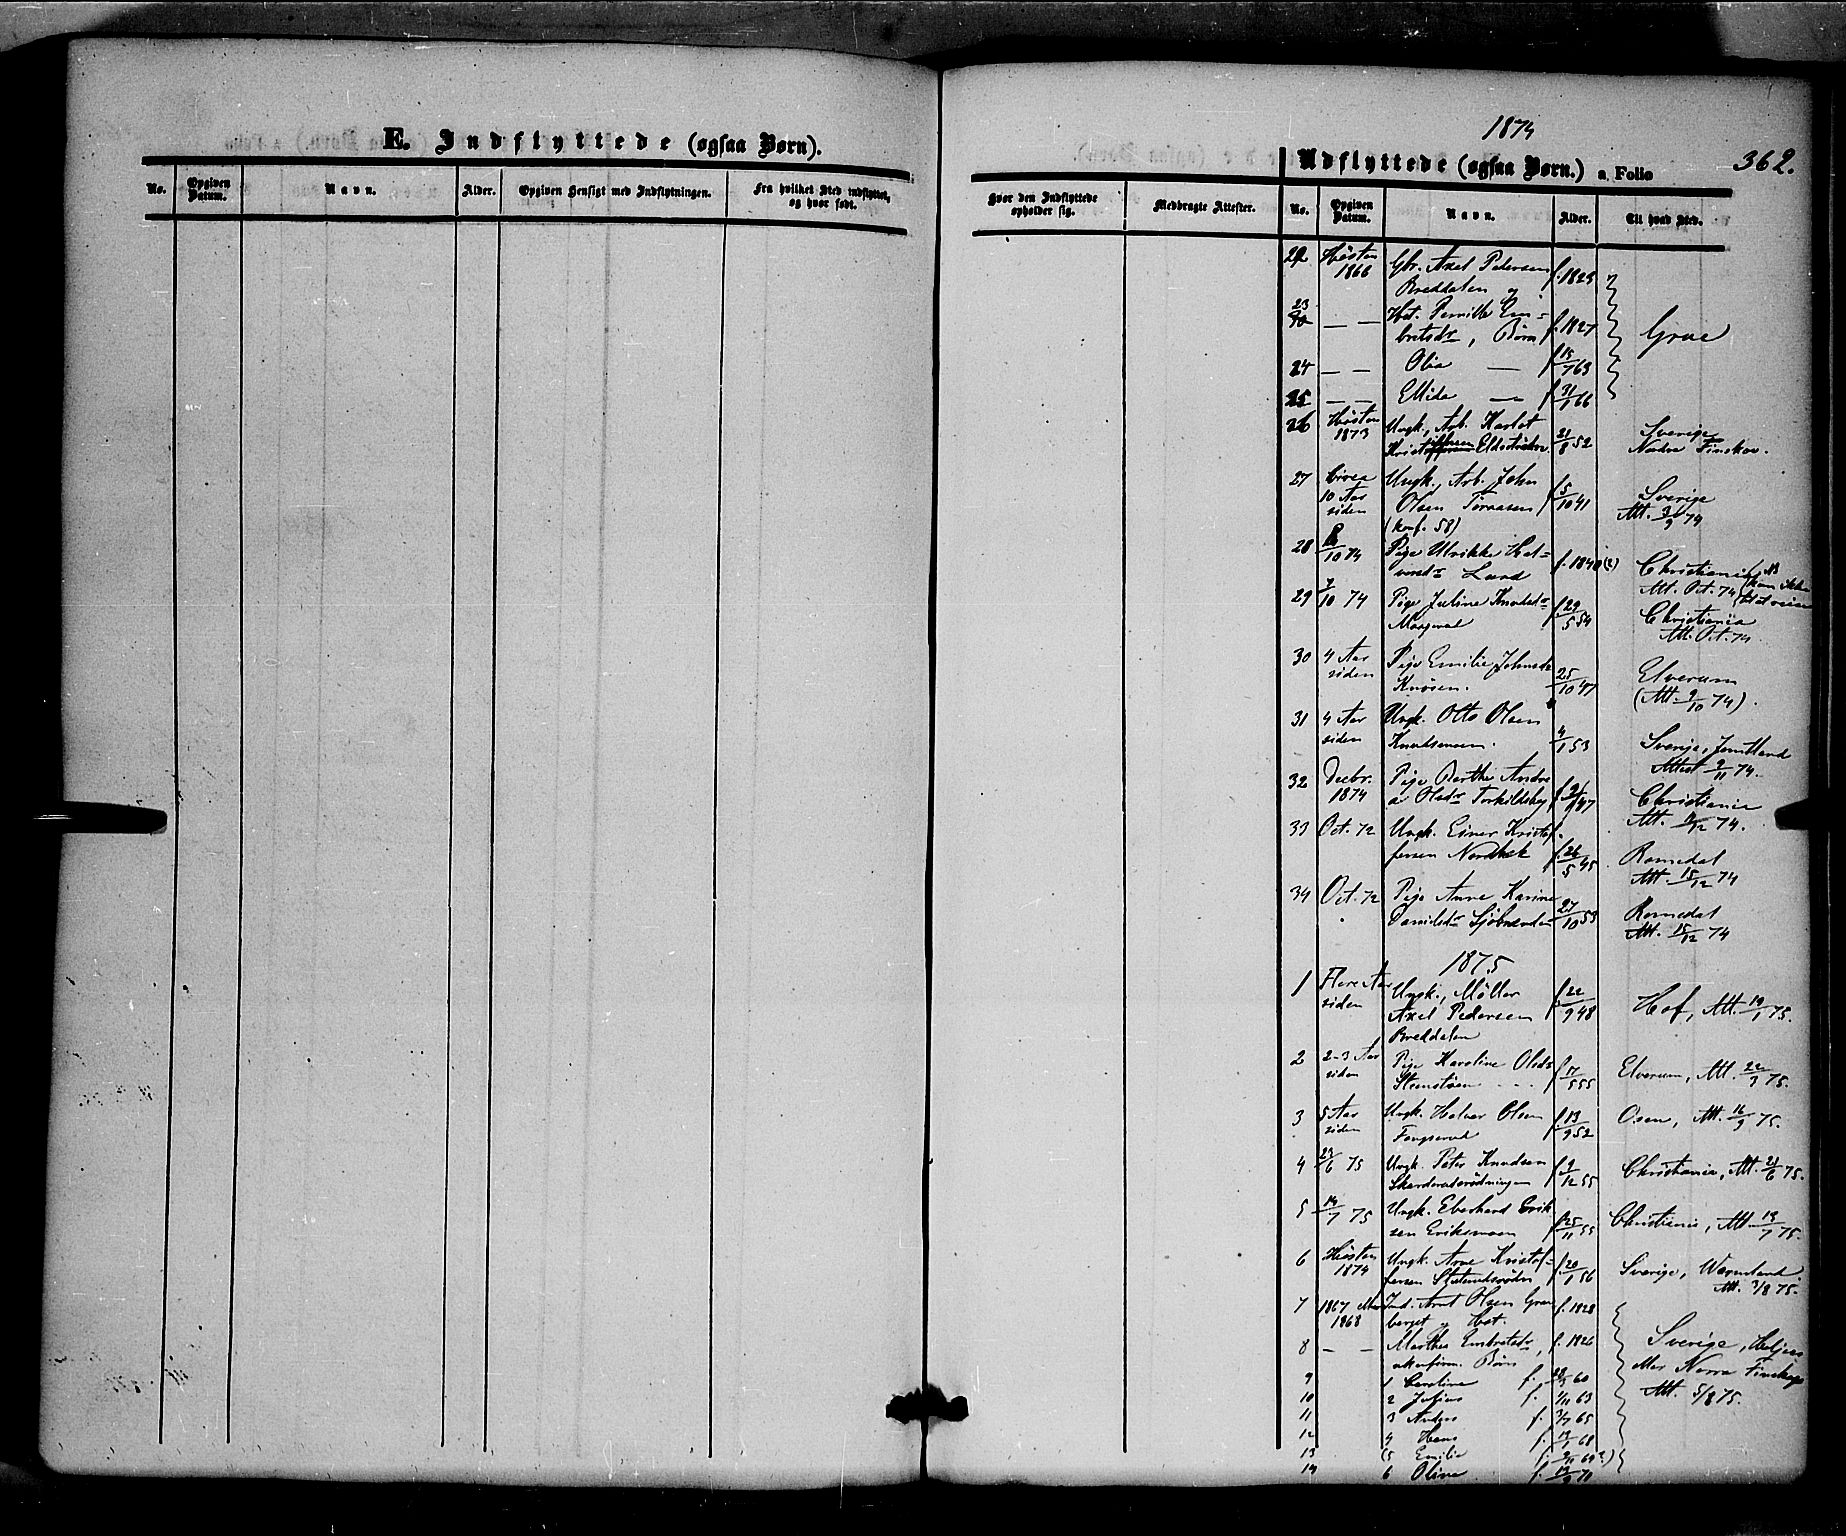 E. Indflyttede (ogsaa Børn).
No. Opgiven Datum. Navn. Alder. Opgiven Hensigt med Indflytningen. Fra hvilket Sted indflyttet, og hvor født.
1874
Udflyttede (ogsaa Børn.) a. Folio
362.
Hvor den Indflyttede opholder sig. Medbragte Attester. No. Opgiven Datum. Navn. Alder. Til hvad Sted.
22 Høsten Gbr. Axel Pedersen f. 1823
1866 Breddalen og
23 — — Hst. Pernille Em=
britsdr, Børn f. 1827 Grue
24 — — Olia — f 15/7 63
25 — — Ellida — f 31/1 66
26 Høsten Ungk., Arb. Karlot Sverige
1873 21/8 52 Nordre Finskov.
27 Circa Ungk., Arb. John f 5/10 41 Sverige
10 Aar Olsen
siden (konf. 58)
28 /10 74 Pige Ulrikke Hal= f. 1840 (?) Christiania
vorsdr Lund Att. Oct. 74
29 7/10 74 Pige Juline Knudsdr f 29/5 54 Christiania
Att. Oct. 74
30 4 Aar Pige Emilie Johnsdr 25/10 47 Elverum
siden Knøsen. (Att. 9/10 74).
31 4 Aar Ungk. Otto Olsen 4/1 53 Sverige, Jemtland
siden Knudsmoen. Attest 9/11 74.
32 Decbr. Pige Berthe Andre
1874 a Olsdr Torkildsby Christiania
33 Oct. 72 Ungk. Einer Kristof- f 26/5 45 Romedal
fersen Att. 15/12 74
34 Oct. 72 Pige Anne Karine 27/10 53 Romedal
Danielsdr Att. 15/12 74
1875
1 Flere Aar Ungk., Møller f 22/9 48 Hof, Att. 19/1 75.
siden Axel Pedersen
Breddalen
2 2-3 Aar Pige Karoline Olsdr f 17/5 55 Elverum, Att. 22/3 75.
siden
3 5 Aar Ungk. Halvor Olsen f 13/9 52 Osen, Att. 16/9 75.
siden
4 23/6 75 Ungk. Peter Knudsen f 9/12 55 Christiania, Att. 21/6 75.
5 14/7 75 Ungk. Eberhard Erik f 25/11 55 Christiania, Att. 13/7 75.
sen Eriksmoen
6 Høsten Ungk. Arne Kristof= f 20/1 56 Sverige, Wermland
1874 fersen Att. 3/8 75.
7 1867 Ind. Arnt Olsen Gran f. 1828
1868 berget og Hst.
8 — — Marthe Embretsdr, f. 1826 Sverige,
Børn Norra Finskoga
9 1 Caroline f. 60 Att. 5/8 75.
10 2 Julius f. 63
11 3 Anders f. 65
12 4 Hans f. 68
13 (5 Emilie 69?)
14 6 Oline f. 71